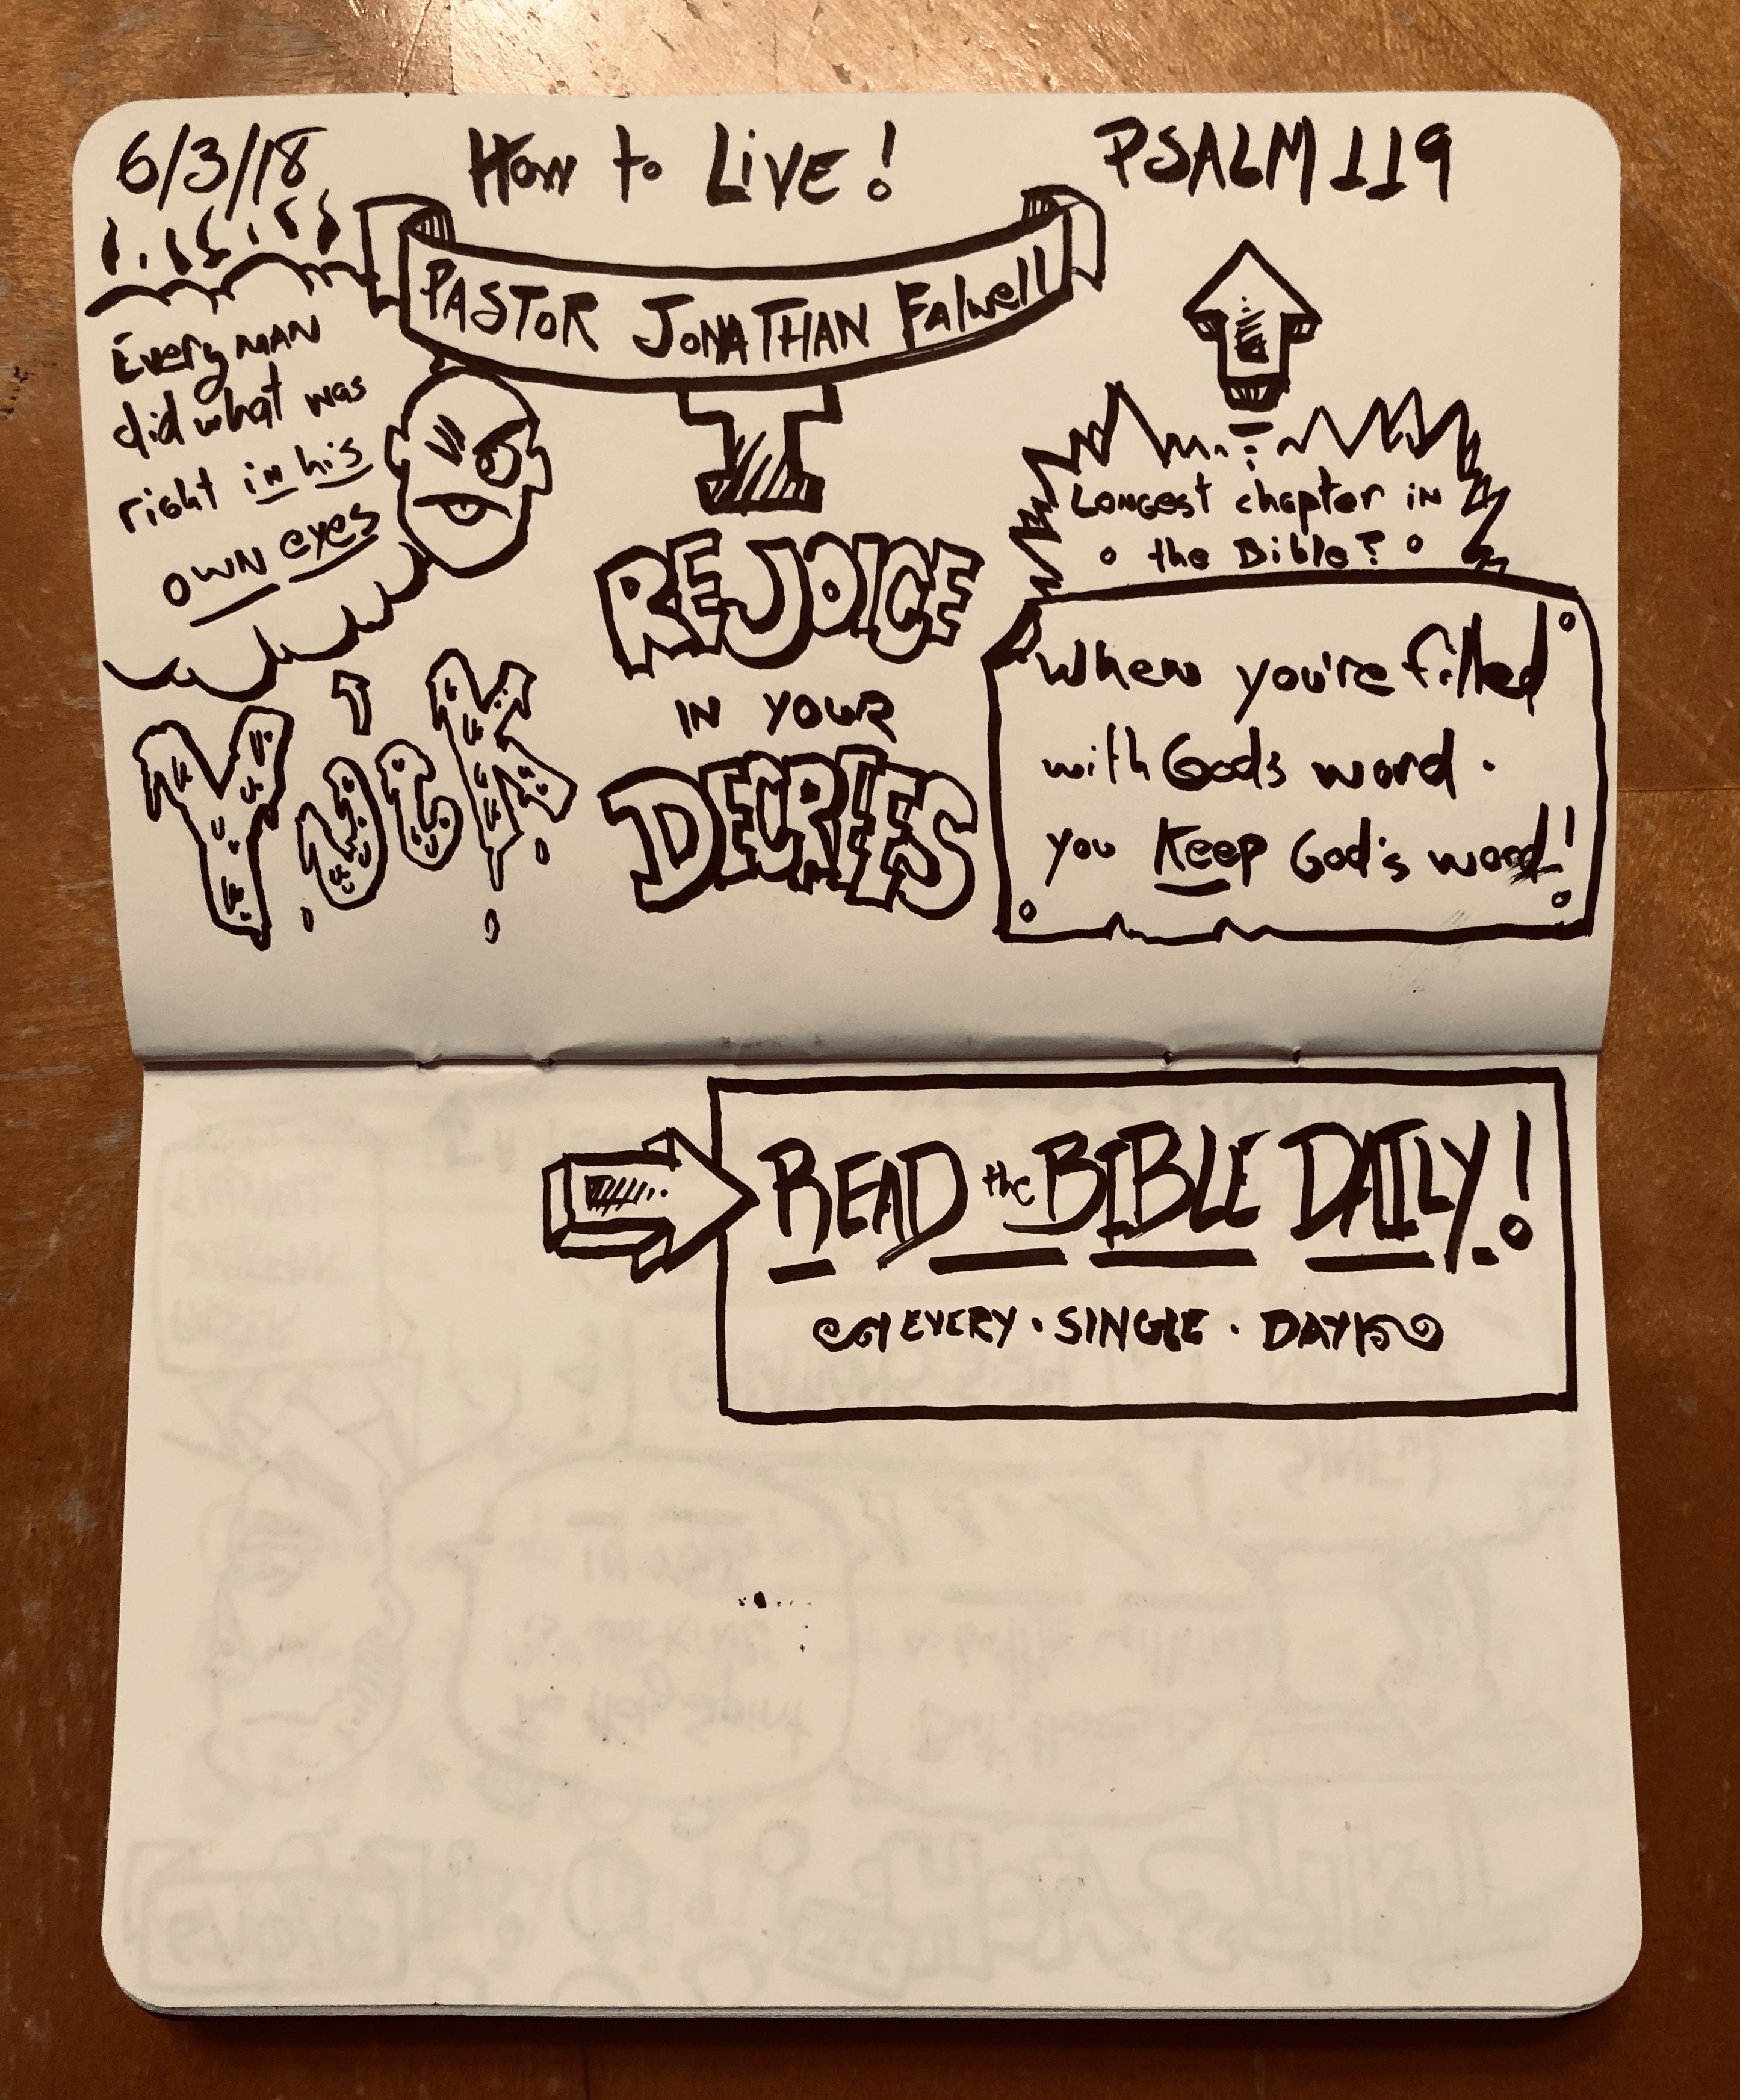 6/3/18
How to Live!
PSALM 119
PASTOR JONATHAN Falwell
Every man
did what was
right in his
own eyes
YUCK
REJOICE
IN YOUR
DECREES
Longest chapter in
the Bible?
When you're filled
with God's word.
you Keep God's word!
READ the BIBLE DAILY!
EVERY · SINGLE · DAY